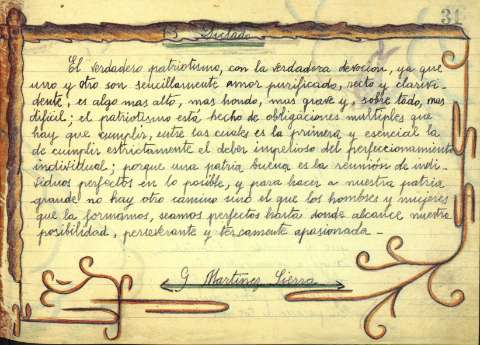 31
13 Dictado
El verdadero patriotismo, con la verdadera devoción, ya que
uno y otro son sencillamente amor purificado, recto y clarivi-
dente, es algo mas alto, mas hondo, mas grave y, sobre todo, mas
dificil; el patriotismo está hecho de obligaciones multiples que
hay que cumplir, entre las cuales es la primera y esencial la
de cumplir estrictamente el deber impetioso del perfeccionamiento
individual; porque una patria buena es la reunión de indi-
viduos perfectos en lo posible, y para hacer a nuestra patria
grande no hay otro camino sino el que los hombres y mujeres
que la formamos, seamos perfectos hasta donde alcance nuestra
posibilidad, perseverante y tercamente apasionada.-
G Martínez Sierra